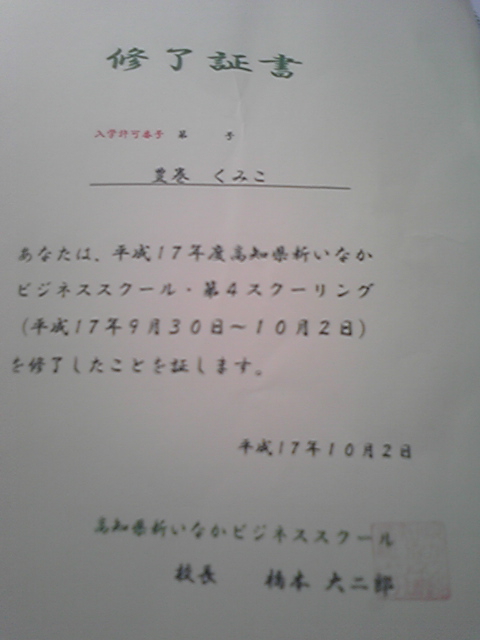 修了証書
入学許可番号 第 号
荒巻 くみこ
あなたは、平成17年度高知県新いなか
ビジネススクール・第4スクーリング
(平成17年9月30日～10月2日)
を修了したことを証します。
平成17年10月2日
高知県新いなかビジネススクール
校長 橋本 大二郎